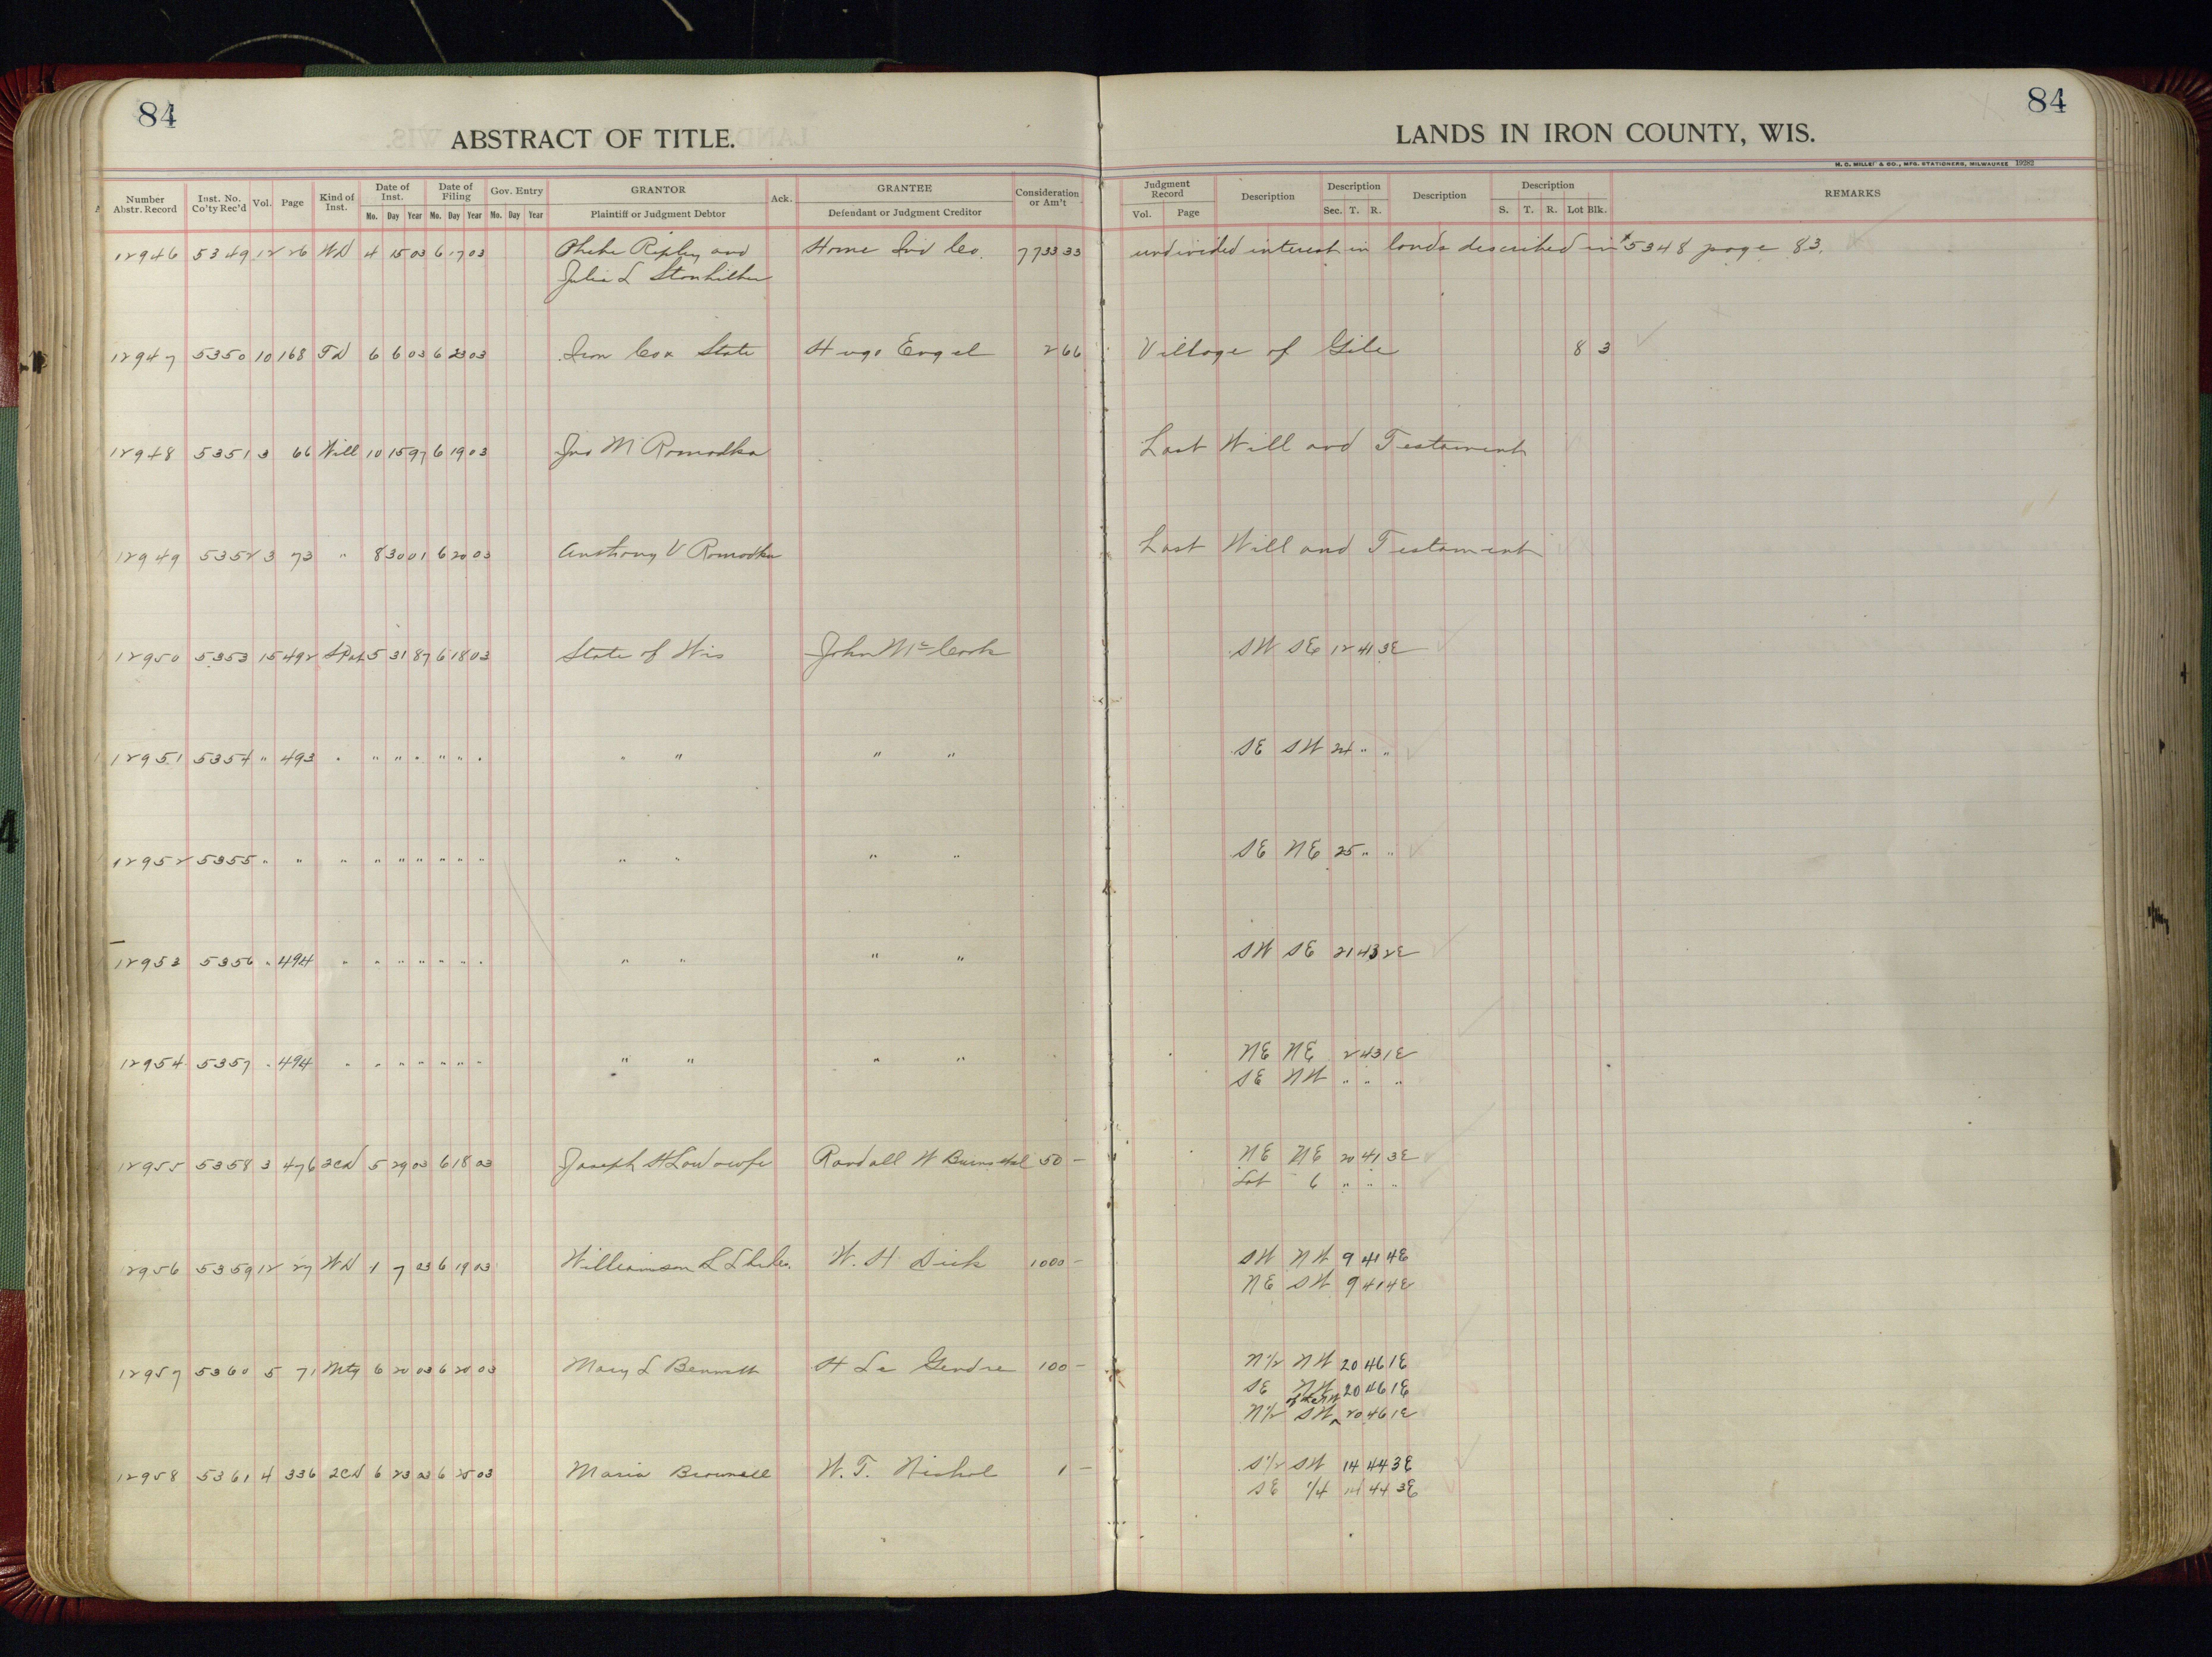 84
ABSTRACT OF TITLE.
84
LANDS IN IRON COUNTY, WIS.
H. C. MILLER & CO., MFG. STATIONERS, MILWAUKEE 19282
Number Abstr. Record Inst. No. Co'ty Rec'd Vol. Page Kind of Inst. Date of Inst. Mo. Day Year Date of Filing Mo. Day Year Gov. Entry Mo. Day Year GRANTOR Plaintiff or Judgment Debtor Ack. GRANTEE Defendant or Judgment Creditor Consideration or Am't Judgment Record Vol. Page Description Description Sec. T. R. Description Description S. T. R. Lot Blk. REMARKS
12946 5349 12 26 WD 4 15 03 6 17 03 Phebe Ripley and Home Ind Co. 7733 33 undivided interest in lands described in 5348 page 83.
Julia L
12947 5350 10 168 TD 6 6 03 6 23 03 Iron Co x State Hugo Engel 2 66 Village of Gile 8 3
12948 5351 3 66 Will 10 15 97 6 19 03 Jno M Romadka Last Will and Testament
12949 5352 3 73 " 8 30 01 6 20 03 Anthony V Romadka Last Will and Testament
12950 5353 15 492 S Pat 5 31 87 6 18 03 State of Wis John Mc Cook SW SE 12 41 3E
12951 5354 " 493 " " " " " " " " " " " SE SW 24 " "
12952 5355 " " " " " " " " " " " " " SE NE 25 " "
12953 5356 " 494 " " " " " " " " " " " SW SE 21 43 2E
12954 5357 " 494 " " " " " " " " " " " NE NE 2 43 1E
SE NW " " "
12955 5358 3 476 2CD 5 29 03 6 18 03 Joseph H Randall W 50 - NE NE 20 41 3E
Lot 6 " " "
12956 5359 12 27 WD 1 7 03 6 19 03 Williamson L W. H Dick 1000 - SW NW 9 41 4E
NE SW 9 41 4E
12957 5360 5 71 Mtg 6 20 03 6 20 03 Mary L Bennett H Le Gendre 100 - N 1/2 NW 20 46 1E
SE NW 20 46 1E
N 1/2 SW 20 46 1E
12958 5361 4 336 2CD 6 23 03 6 25 03 Maria Brownell W. T. Nichol 1 - S 1/2 SW 14 44 3E
SE 1/4 14 44 3E